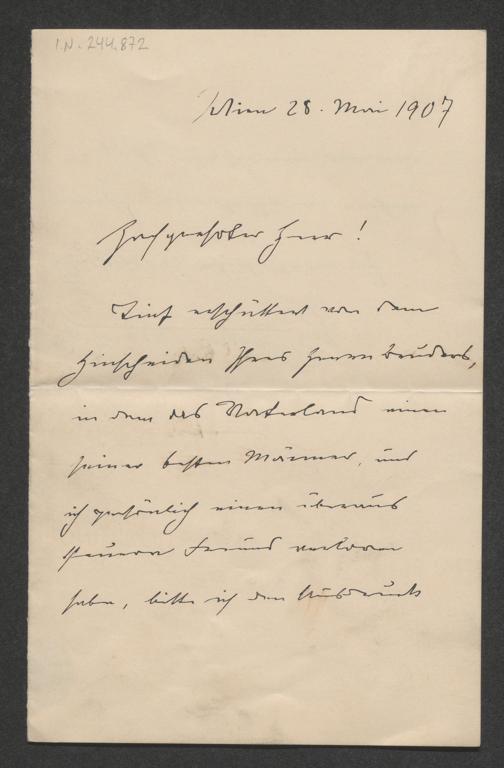 I.N. 244.872
Wien 28. Mai 1907
Hochgeehrter Herr!
Tief erschüttert von dem
Hinscheiden Ihres Herrn Bruders,
in dem das Vaterland einen
seiner besten Männer, und
ich persönlich einen überaus
theuern Freund verloren
habe, bitte ich den Ausdruck